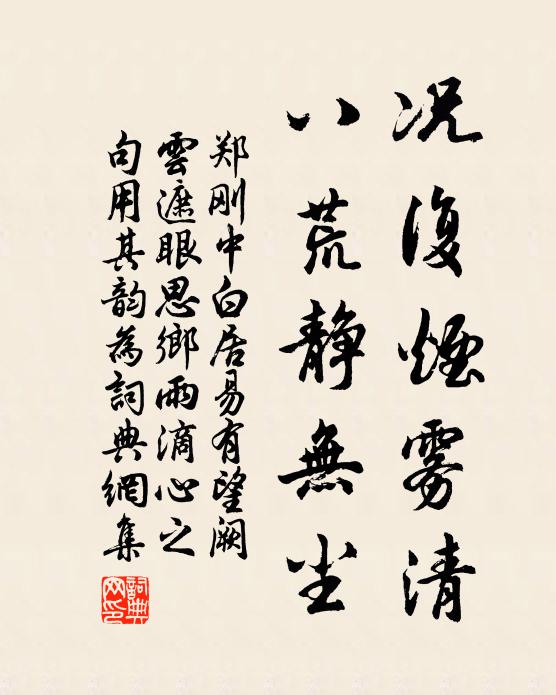 况復煙雾清
八荒静無尘
郑刚中白居易有望阙
雲遮眼思鄉雨滴心之
句用其韵為詞典網集
詞典
网印